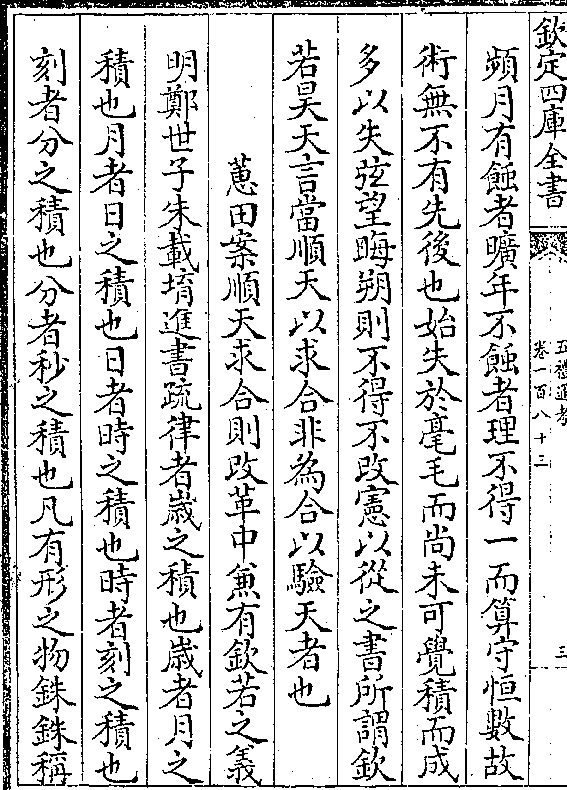 欽定四庫全書
五禮通考
卷一百八十三
三
頻月有蝕者曠年不蝕者理不得一而算守恒數故
術無不有先後也始失於毫毛而尚未可覺積而成
多以失弦望晦朔則不得不改憲以從之書所謂欽
若昊天言當順天以求合非為合以驗天者也
蕙田案順天求合則改革中兼有欽若之義
明鄭世子朱載堉進書疏律者歲之積也歲者月之
積也月者日之積也日者時之積也時者刻之積也
刻者分之積也分者秒之積也凡有形之物銖銖稱